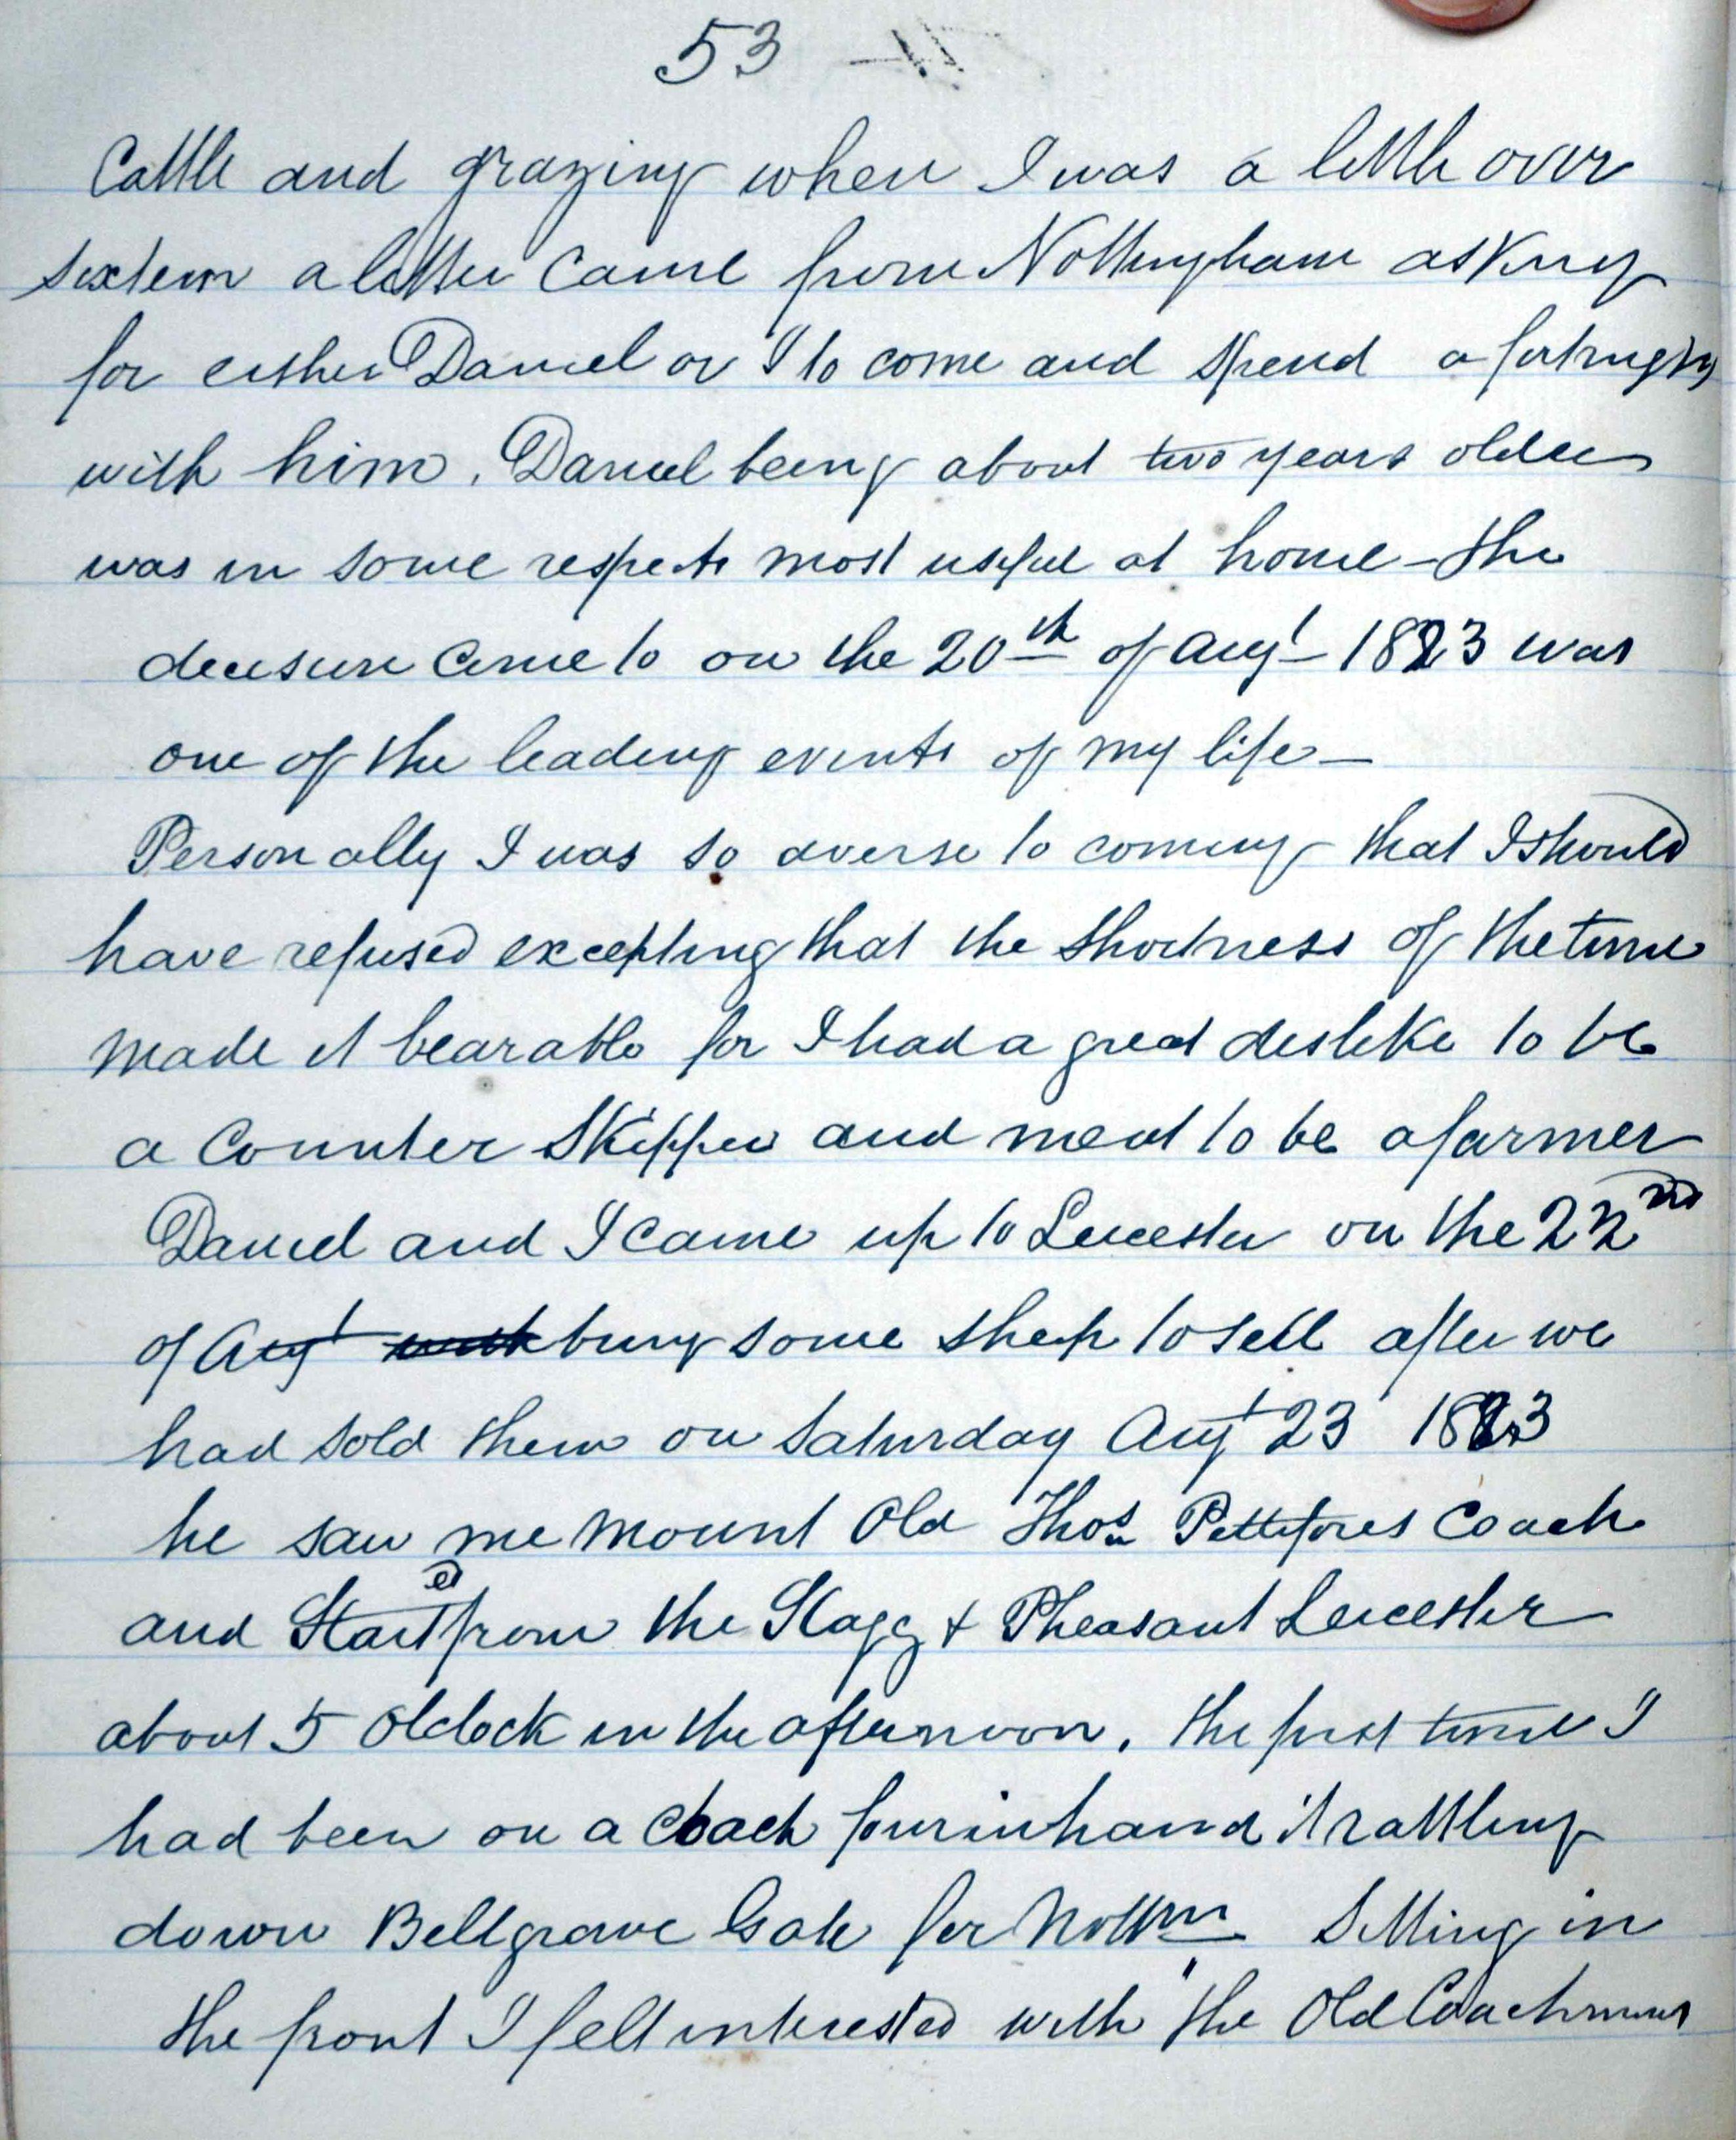 53
Cattle and grazing when I was a little over
sixteen a letter came from Nottingham asking
for either Daniel or I to come and spend a fortnight
with him. Daniel being about two years older
was in some respects most useful at home - the
decision come to on the 20th of Augt 1823 was
one of the leading events of my life -
Personally I was so averse to coming that I should
have refused excepting that the shortness of the time
made it bearable for I had a great dislike to be
a Counter Skipper and meat to be a farmer
Daniel and I came up to Leicester on the 22nd
of Augt bring some sheep to sell after we
had sold them on Saturday Augt 23 1823
he saw me mount Old Thos Pettifores Coach
and Started from the Stagg & Pheasant Leicester
about 5 Oclock in the afternoon. the first time I
had been on a Coach fourinhand it rattling
down Bellgrave Gate for Nottm Sitting in
the front I felt interested with the Old Coachmans